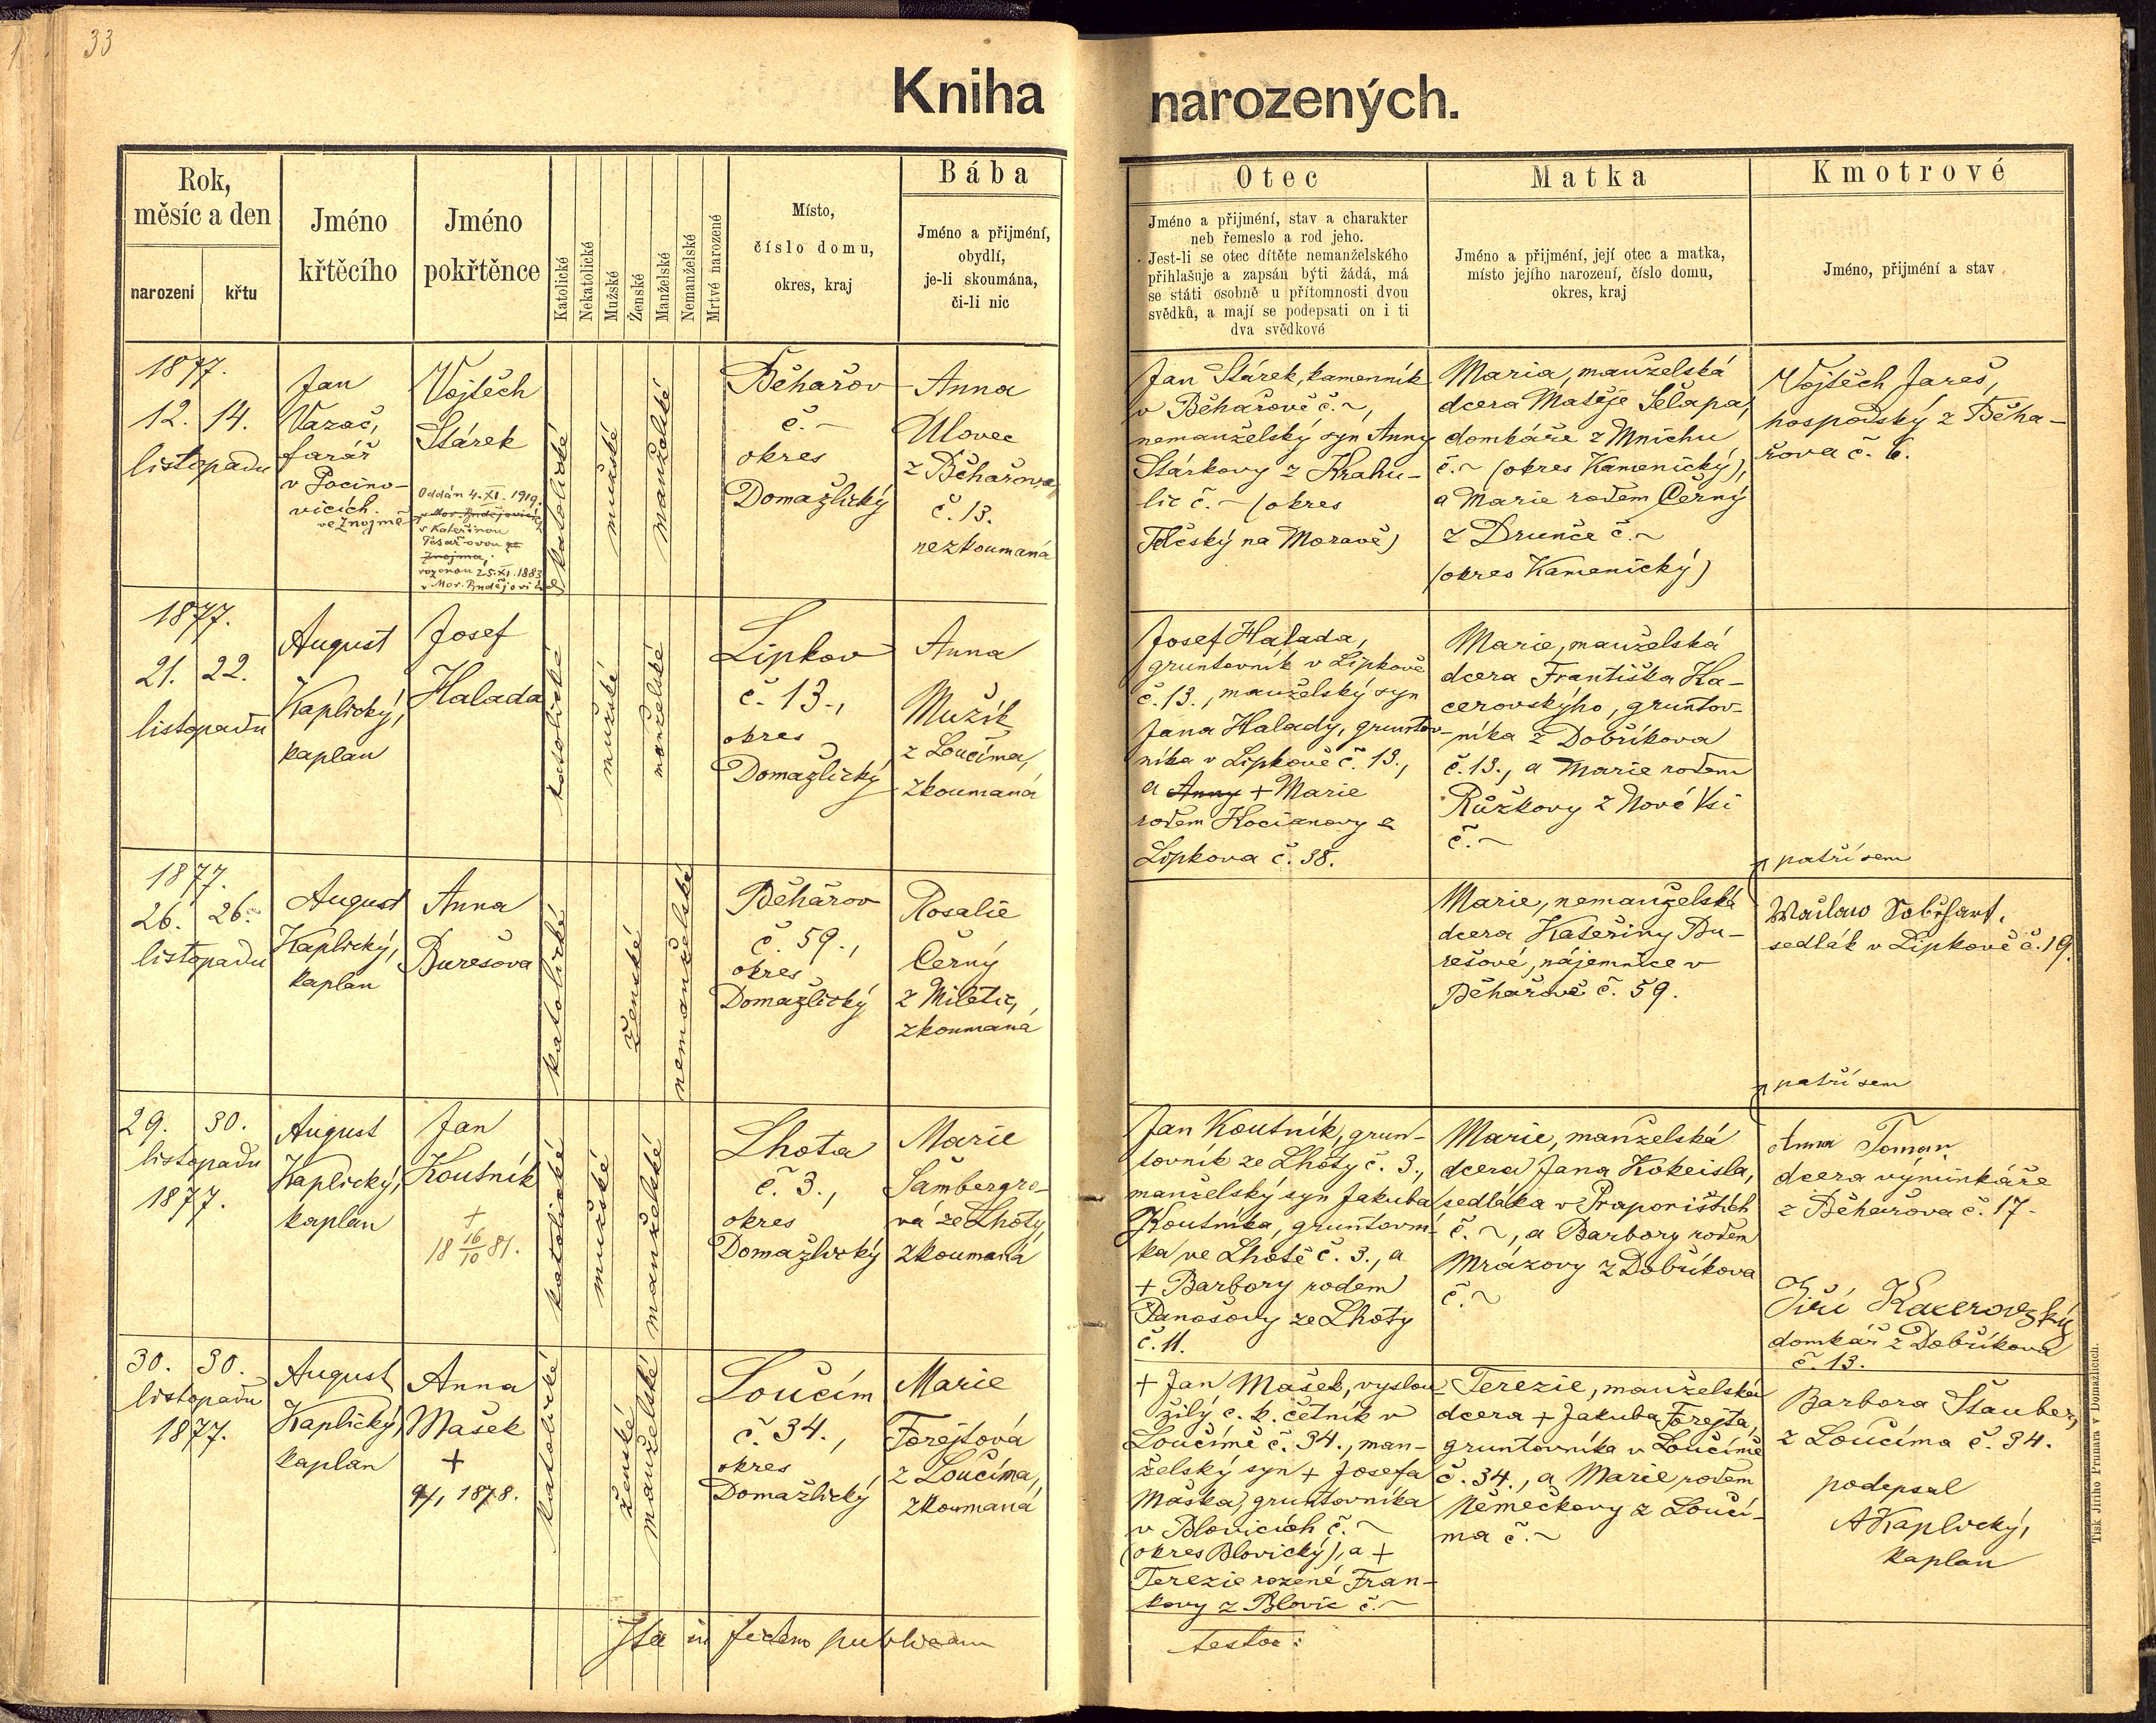 33
Kniha narozených.
Rok,
měsíc a den
narození
křtu
Jméno
křtěcího
Jméno
pokřtěnce
Katolické
Nekatolické
Mužské
Ženské
Manželské
Nemanželské
Mrtvé narozené
Místo,
číslo domu,
okres, kraj
Bába
Jméno a přijmení,
obydlí,
je-li skoumána,
či-li nic
Otec
Jméno a přijmení, stav a charakter
neb řemeslo a rod jeho.
Jest-li se otec dítěte nemanželského
přihlašuje a zapsán býti žádá, má
se státi osobně u přítomnosti dvou
svědků, a mají se podepsati on i ti
dva svědkové
Matka
Jméno a přijmení, její otec a matka,
místo jejího narození, číslo domu,
okres, kraj
Kmotrové
Jméno, přijmení a stav
1877.
12. 14.
listopadu
Jan
Vazač,
farář
v Pocino-
vicích.
Vojtěch
Stárek
Oddán 4. XI. 1919
ve Znojmě
v Mor. Budějovicích
s Kateřinou
Tesařovou ze
Znojma,
rozenou 25. XI. 1883
v Mor. Budějovicích
katolické
mužské
manželské
Běhařov
č. ~
okres
Domažlický
Anna
Ulovec
z Běhařova
č. 13.
nezkoumaná
Jan Stárek, kamenník
v Běhařově č. ~,
nemanželský syn Anny
Stárkovy z Krahu-
lic č. ~ (okres
Telčský na Moravě)
Maria, manželská
dcera Matěje Šelapa,
domkáře z Mnichu
č. ~ (okres Kamenický),
a Marie rodem Černý
z Drunče č. ~
(okres Kamenický)
Vojtěch Jareš,
hospodský z Běha-
řova č. 6.
1877.
21. 22.
listopadu
August
Kaplický,
kaplan
Josef
Halada
katolické
mužské
manželské
Lipkov
č. 13.,
okres
Domažlický
Anna
Mužík
z Loučíma,
zkoumaná
Josef Halada,
gruntovník v Lipkově
č. 13., manželský syn
Jana Halady, gruntov-
níka v Lipkově č. 13.,
a Anny + Marie
rodem Kocianovy z
Lipkova č. 38.
Marie, manželská
dcera Františka Ka-
cerovskýho, gruntov-
níka z Dobříkova
č. 13., a Marie rodem
Růžkovy z Nové Vsi
č. ~
patří sem
1877.
26. 26.
listopadu
August
Kaplický,
kaplan
Anna
Burešova
katolické
ženské
nemanželské
Běhařov
č. 59.,
okres
Domažlický
Rosalie
Černý
z Miletic,
zkoumaná
Marie, nemanželská
dcera Kateřiny Bu-
rešové, nájemnice v
Běhařově č. 59.
sedlák v Lipkově č. 19.
patří sem
29. 30.
listopadu
1877.
August
Kaplický,
kaplan
Jan
Koutník
+
18 16/10 81.
katolické
mužské
manželské
Lhota
č. 3.,
okres
Domažlický
Marie
Šambergro-
vá ze Lhoty,
zkoumaná
Jan Koutník, grun-
tovník ze Lhoty č. 3.,
manželský syn Jakuba
Koutníka, gruntovní-
ka ve Lhotě č. 3., a
+ Barbory rodem
Panošovy ze Lhoty
č. 11.
Marie, manželská
dcera Jana Kokeisla,
sedláka v Prapořištích
č. ~, a Barbory rodem
Mrázovy z Dobříkova
č. ~
Anna Toman
dcera výminkáře
z Běhařova č. 17.
Jiří Kacerovský
domkář z Dobříkova
č. 13.
30. 30.
listopadu
1877.
August
Kaplický,
kaplan
Anna
Mašek
+
1878.
katolické
ženské
manželské
Loučím
č. 34.,
okres
Domažlický
Marie
Forejtová
z Loučíma,
zkoumaná
+ Jan Mašek, vyslou-
žilý c. k. četník v
Loučímě č. 34., man-
želský syn + Josefa
Maška, gruntovníka
v Blovicích č. ~
(okres Blovický), a +
Terezie rozené Fran-
kovy z Blovic č. ~
Terezie, manželská
dcera + Jakuba Forejta,
gruntovníka v Loučímě
č. 34., a Marie rodem
Němečkovy z Loučí-
ma č. ~
Barbora Stauber,
z Loučíma č. 34.
podepsal
AKaplický,
kaplan
Ita in fidem publicam
testor:
Tisk Jiřího Prunara v Domažlicích.